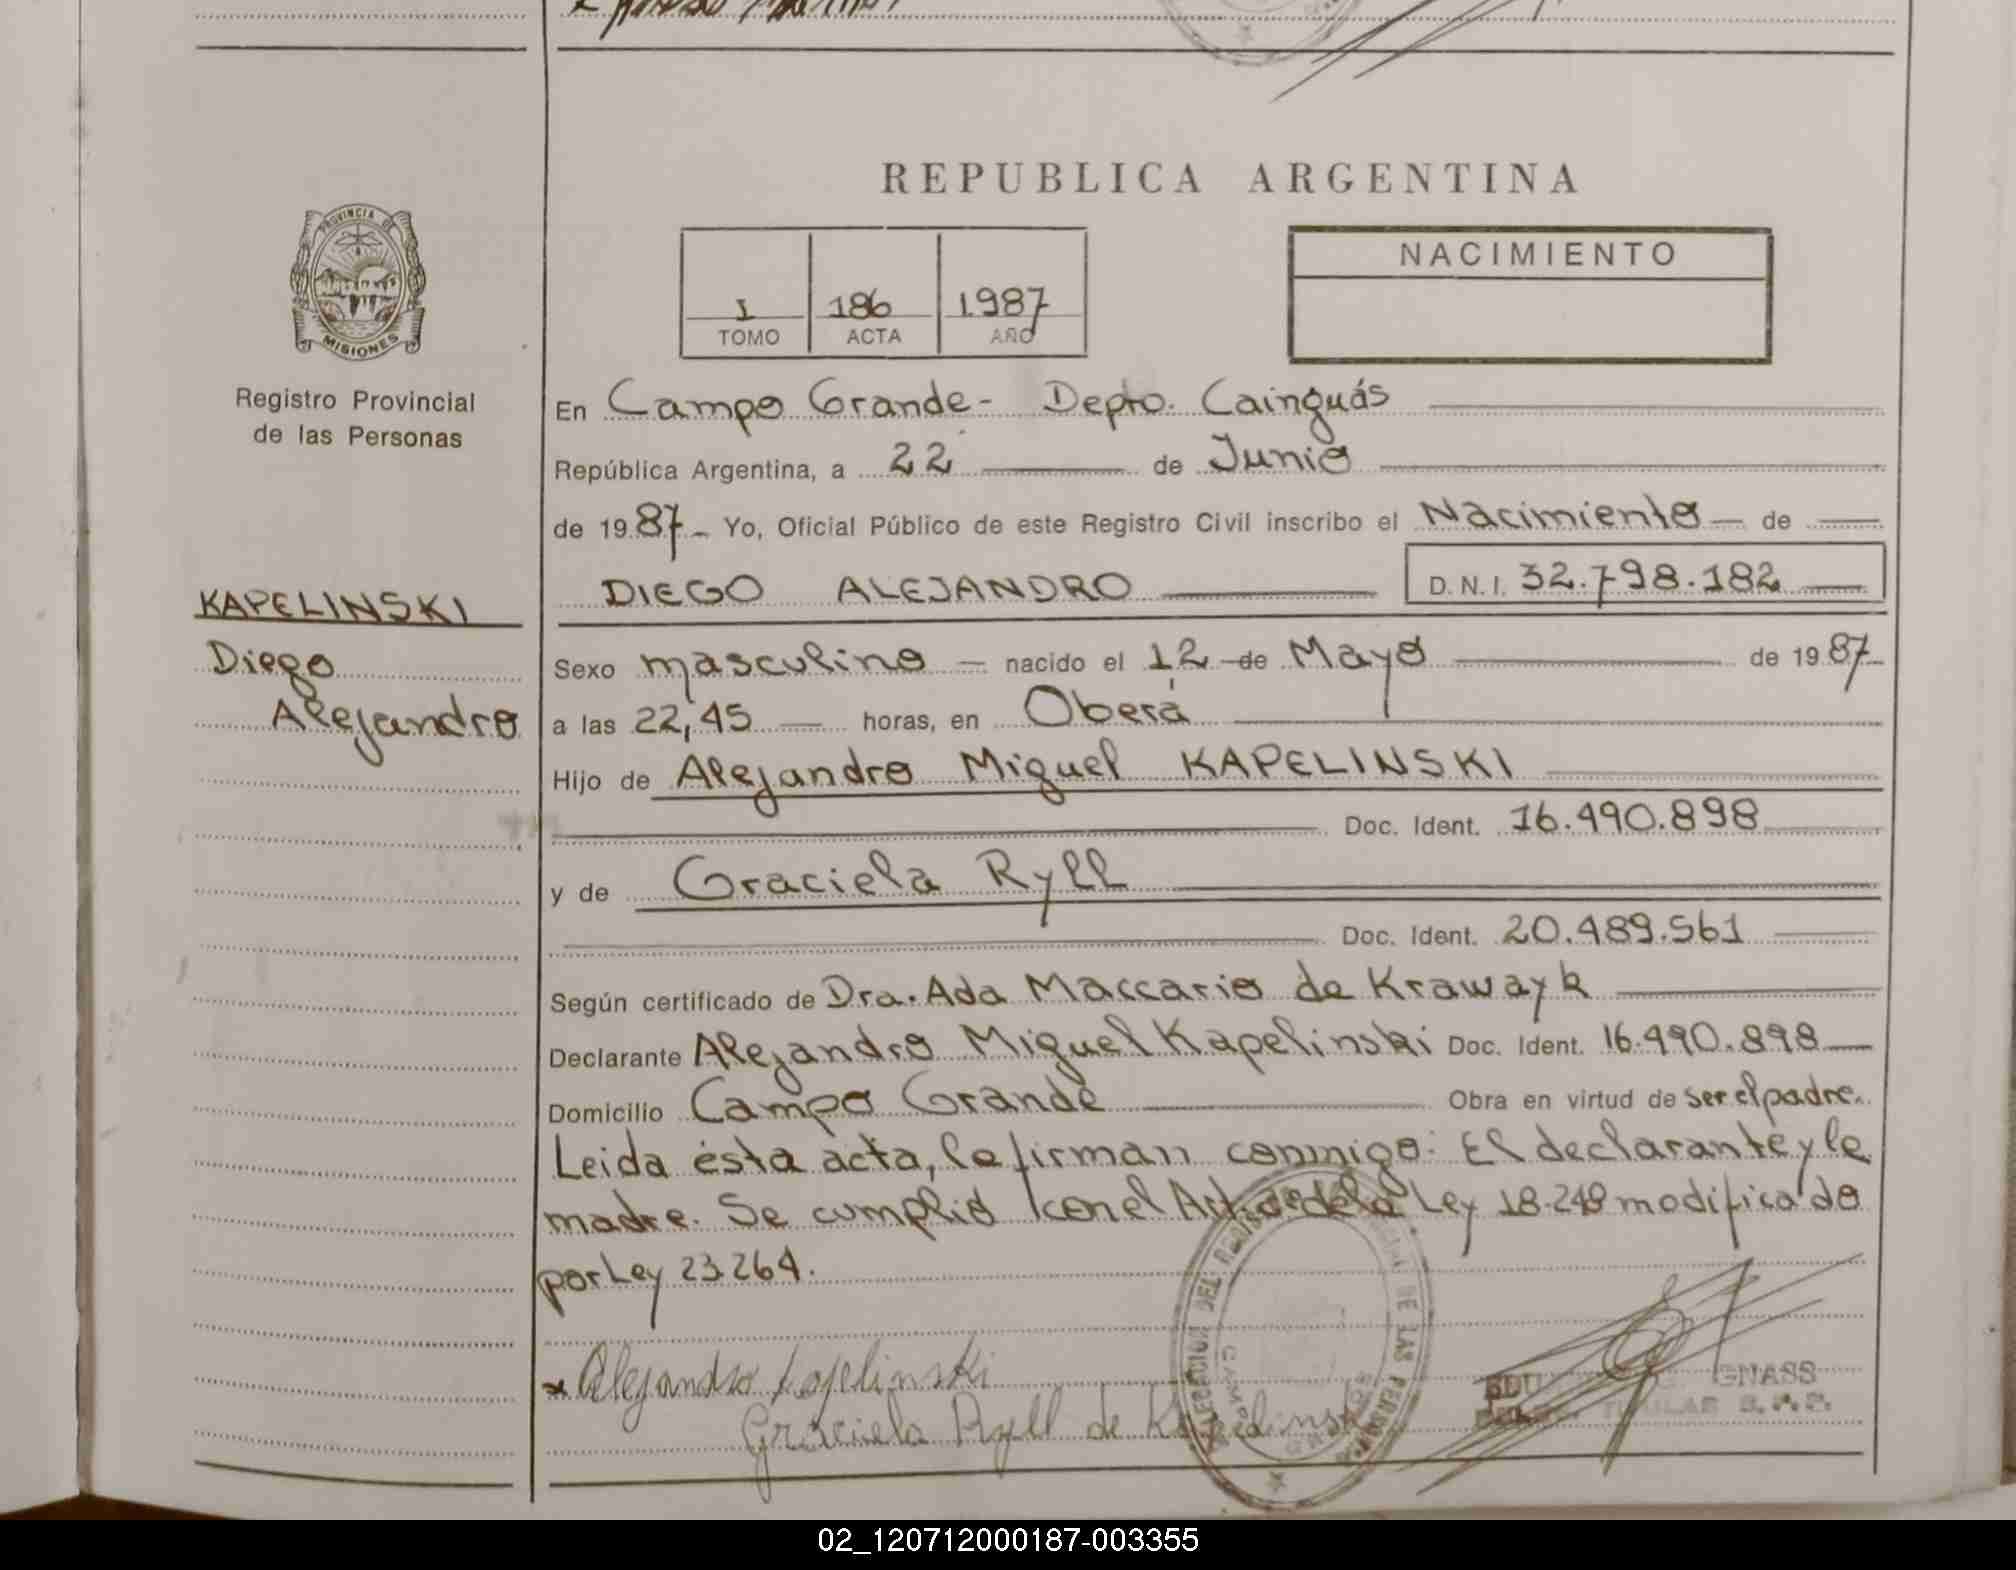 REPUBLICA ARGENTINA
PROVINCIA DE
MISIONES
Registro Provincial
de las Personas
1 186 1.987
TOMO ACTA AÑO
NACIMIENTO
En Campo Grande - Depto. Cainguás
República Argentina, a 22 de Junio
de 19 87 - Yo, Oficial Público de este Registro Civil inscribo el Nacimiento de
KAPELINSKI
Diego
Alejandro
DIEGO ALEJANDRO D.N.I. 32.798.182
Sexo masculino nacido el 12 de Mayo de 19 87
a las 22,45 horas, en Oberá
Hijo de Alejandro Miguel KAPELINSKI
Doc. Ident. 16.490.898
y de Graciela Ryll
Doc. Ident. 20.489.561
Según certificado de Dra. Ada Maccario de Krawayk
Declarante Alejandro Miguel Kapelinski Doc. Ident. 16.490.898
Domicilio Campo Grande Obra en virtud de ser el padre.
Leida ésta acta, la firman conmigo: El declarante y la
madre. Se cumplió con el Art. de la Ley 18.248 modificado
por Ley 23.264.
Alejandro Kapelinski
Graciela Ryll de Kapelinski
GNASS
02_120712000187-003355